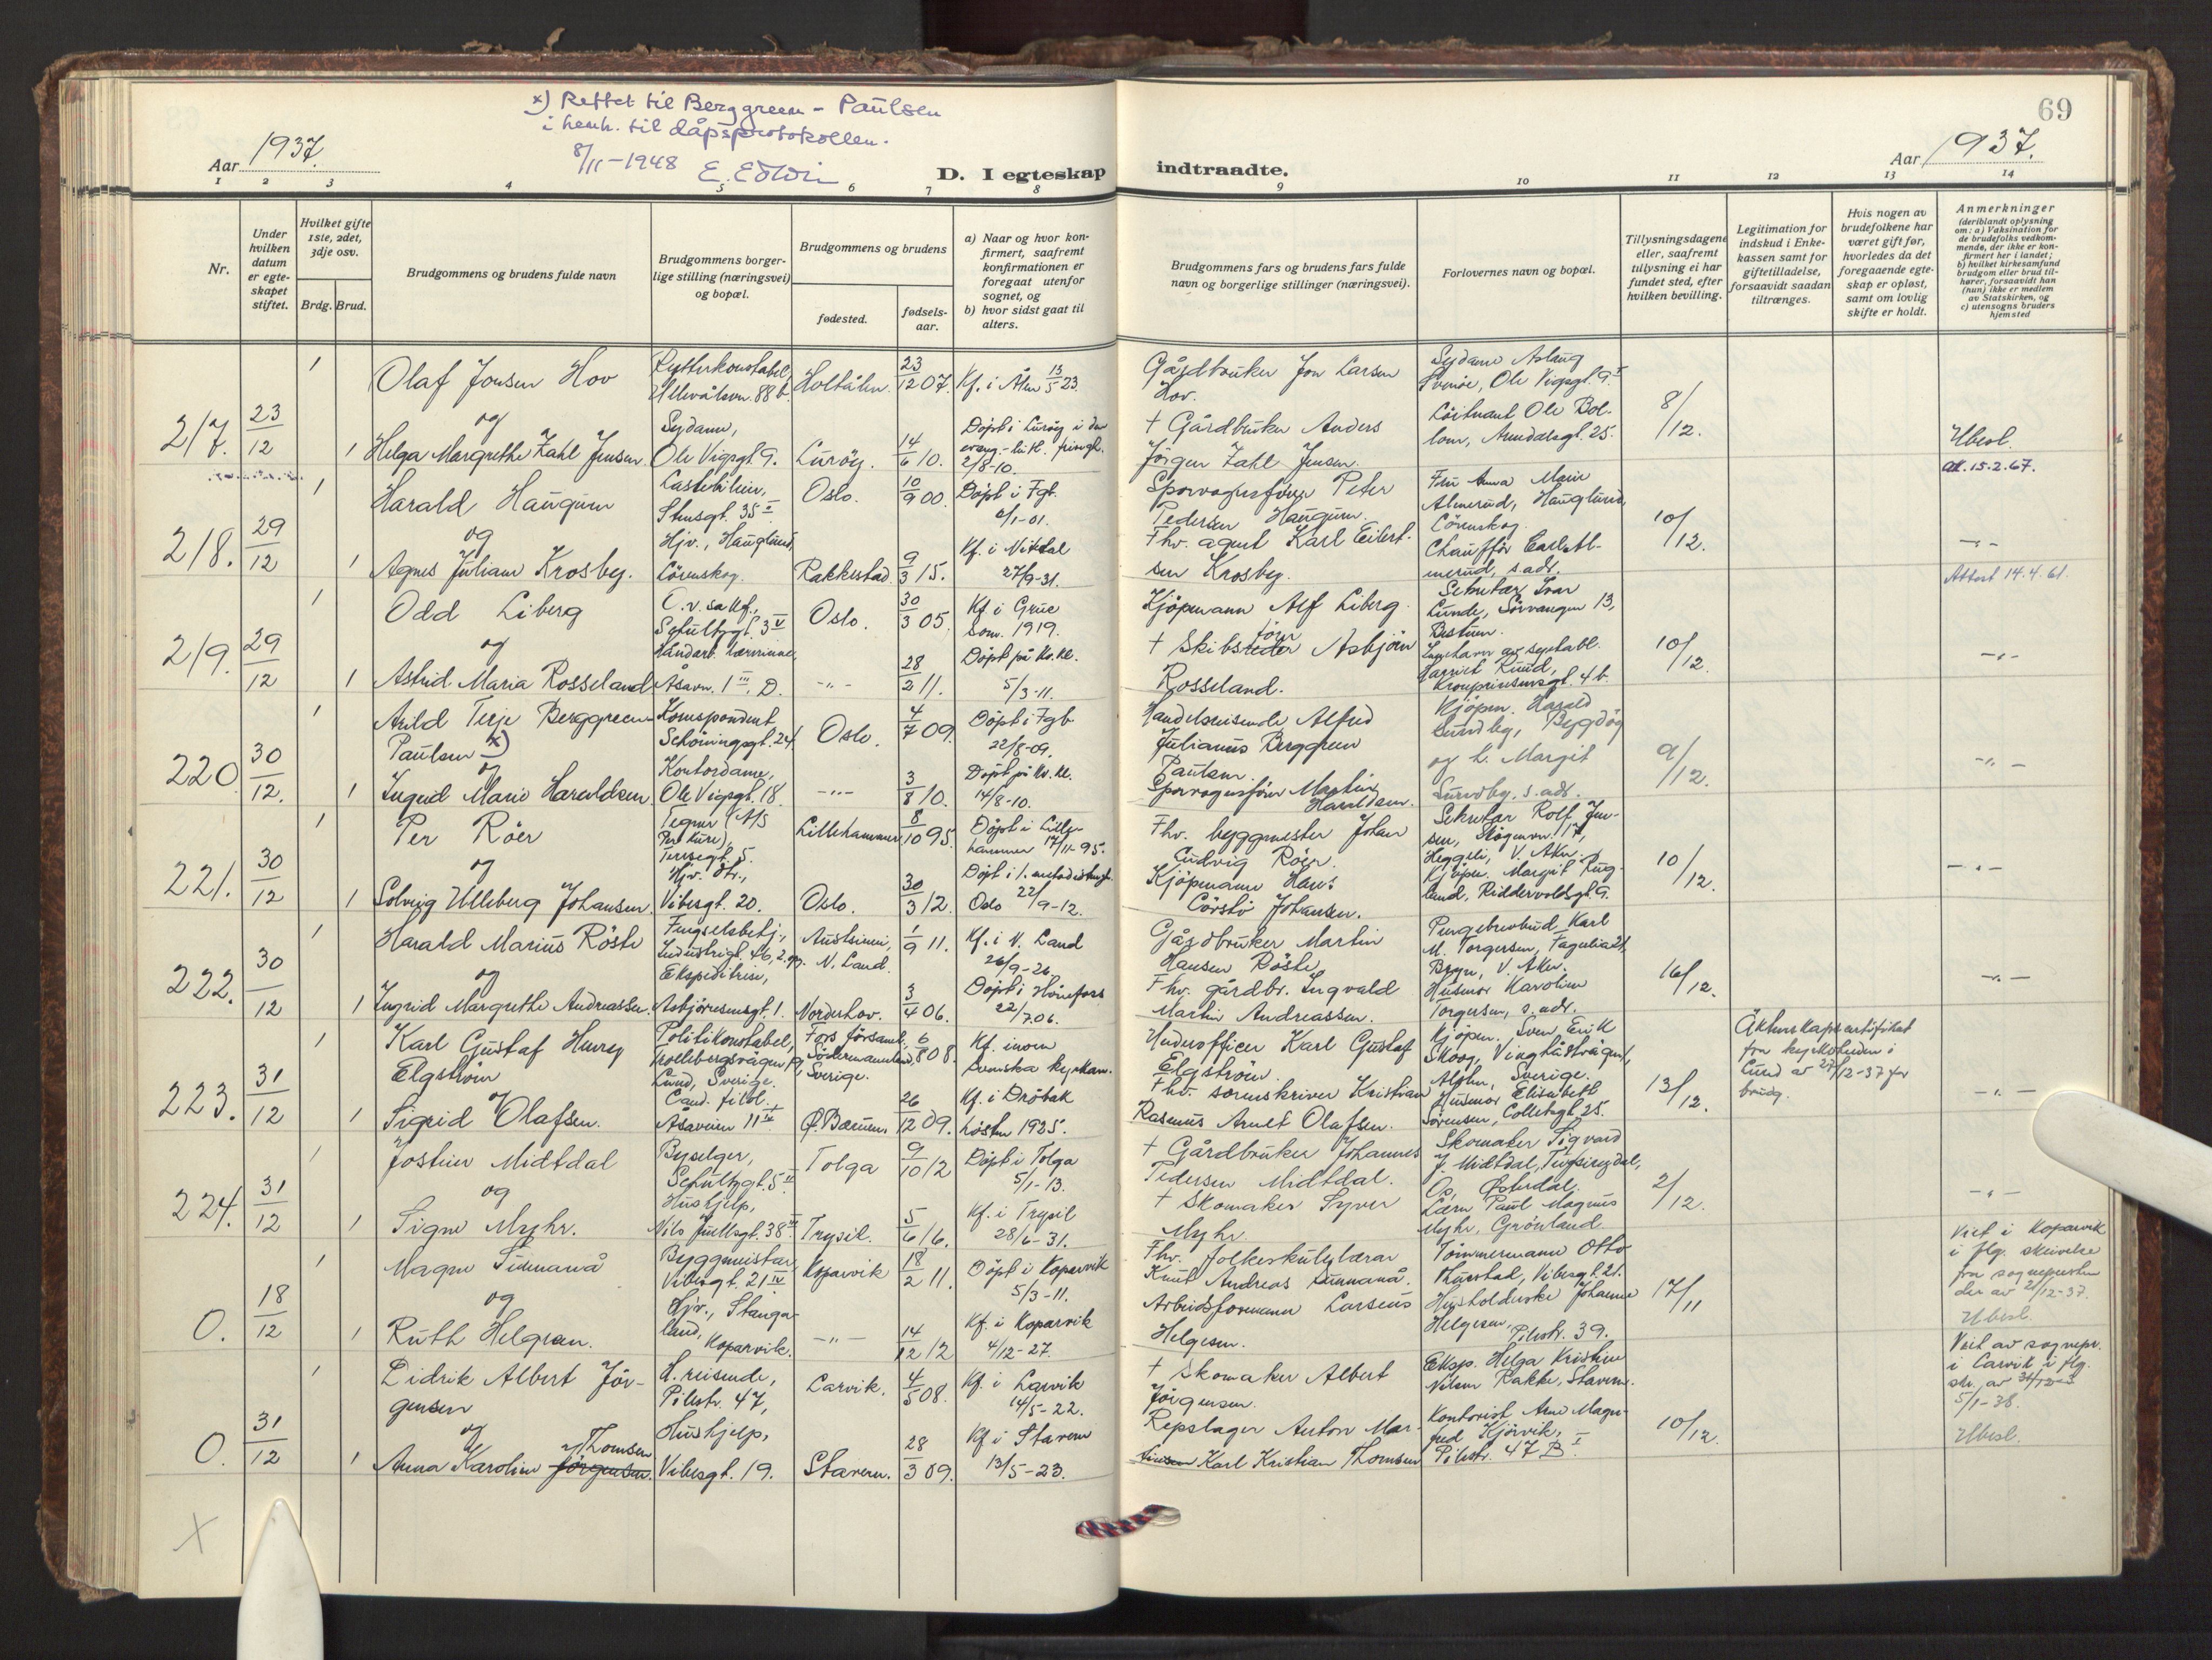 x) Rettet til Berggreen - Paulsen
i henh. til dåpsprotokollen.
8/11-1948
69
Aar 1937.
D. I egteskap indtraadte.
Aar 1937.
1 2 3 4 5 6 7 8 9 10 11 12 13 14
Nr.
Under hvilken datum er egteskapet stiftet.
Hvilket gifte 1ste, 2det, 3dje osv.
Brdg. Brud.
Brudgommens og brudens fulde navn
Brudgommens borgerlige stilling (næringsvei) og bopæl.
Brudgommens og brudens
fødested.
fødselsaar.
a) Naar og hvor konfirmert, saafremt konfirmationen er foregaat utenfor sognet, og
b) hvor sidst gaat til alters.
Brudgommens fars og brudens fars fulde navn og borgerlige stillinger (næringsvei).
Forlovernes navn og bopæl.
Tillysningsdagene eller, saafremt tillysning ei har fundet sted, efter hvilken bevilling.
Legitimation for indskud i Enkekassen samt for giftetilladelse, forsaavidt saadan tiltrænges.
Hvis nogen av brudefolkene har været gift før, hvorledes da det foregaaende egteskap er opløst, samt om lovlig skifte er holdt.
Anmerkninger
(deriblandt oplysning om: a) Vaksination for de brudefolks vedkommende, der ikke er konfirmert her i landet; b) hvilket kirkesamfund brudgom eller brud tilhører, forsaavidt han (hun) ikke er medlem av Statskirken, og c) utensogns bruders hjemsted
217. 23/12
1 Olaf Jonsen Hov
Rytterkonstabel, Ullevålsvn. 88 b.
Holtålen. 23/12 07.
Kf. i Ålen 13/5 23.
Gårdbruker Jon Larsen Hov.
Sydame Aslaug Svinöe, Ole Vigsgt. 9.
og
1 Helga Margrethe Zahl Jensen.
Sydame, Ole Vigsgt. 9.
Luröy. 14/6 10.
Döpt i Luröy i den evang.-luth. frimgh. 2/8-10.
† Gårdbruker Anders Jörgen Zahl Jensen.
Löitnant Ole Bollom, Arendalsgt. 25.
8/12.
Ubesl.
att. 15.2.67.
218. 29/12
1 Harald Haugum
Lastebileier, Stensgt. 35
Oslo. 10/9 00.
Döpt i Fgb. 6/1-01.
Sporvognsförer Peter Pedersen Haugum.
Fru Anna Marie Almerud, Hauglund, Lörenskog.
og
1 Agnes Juliane Krosby.
Hjv., Hauglund, Lörenskog.
Rakkestad. 9/3 15.
Kf. i Nittedal 27/9-31.
Fhv. agent Karl Eilertsen Krosby.
Chaufför Carl Almerud, s. ads.
10/12.
-"-
Attest 14.4.61.
219. 29/12
1 Odd Liberg
O.r. sakf., Schultzgt. 3
Oslo. 30/3 05.
Kf. i Grue som. 1919.
Kjöpmann Alf Liberg.
Sekretær Ivar Lunde, Sörvangen 13, Bestum.
og
1 Astrid Maria Rosseland
Håndarb. lærerinne, Åsavn. 1 III D.
-"- 28/2 11.
Döpt på Kv.kl. 5/3-11.
† Skibsförer Asbjörn Rosseland.
Harriet Ruud, Kronprinsensgt. 4 b.
10/12.
-"-
220 30/12.
1 Arild Terje Berggreen Paulsen x)
Korrespondent, Schöningsgt. 24
Oslo. 4/7 09.
Döpt i Fgb 22/8-09.
Handelsreisende Alfred Julianus Berggreen Paulsen.
Kjöpm. Harald Lundby, Bygdöy
og
1 Ingrid Marie Haraldsen
Kontordame, Ole Vigsgt. 18.
-"- 3/8 10.
Döpt på Kv. kl. 14/8-10.
Sporvognsförer Martin Haraldsen.
og h. Margit Lundby, s. ads.
9/12.
-"-
221. 30/12
1 Per Röer
Tegner (A/S Per Kure), Terresegt. 5.
Lillehammer 8/10 95.
Döpt i Lillehammer 17/11-95.
Fhv. byggmester Johan Ludvig Röer.
Sekretær Rolf Jensen, Skogenvn. 17, Heggeli, V. Aker.
og
1 Solveig Ulleberg Johansen.
Hjv. dtr., Vibesgt. 20.
Oslo. 30/3 12.
Döpt i 1. metodistmgh. Oslo 22/9-12.
Kjöpmann Hans Johansen.
Kjöpm. Margit Rugland, Riddervoldsgt. 9.
10/12.
-"-
222. 30/12
1 Harald Marius Röste
Fengselsbetj., Industrigt. 46, 2. opg.
N. Land. 1/9 11.
Kf. i N. Land 26/9-26.
Gårdbruker Martin Hansen Röste
Pengebrevbud Karl M. Torgersen, Fagerlia 21, Bryn, V. Aker.
og
1 Ingrid Margrethe Andreassen.
Ekspeditrise, Asbjörnsensgt. 1.
Norderhov. 3/4 06.
Döpt i Hönefoss 22/7.06.
Fhv. gårdbr. Ingvald Martin Andreassen.
Husmor Karoline Torgersen, s. adr.
16/12.
-"-
223. 31/12
1 Karl Gustaf Henry Elgström
Politikonstabel, Trollebergsvägen, Lund, Sverige.
Fors församl., Södermanland, Sverige. 6/8 08.
Kf. inom Svenska kyrkan.
Underofficer Karl Gustaf Elgström.
Kjöpm. Sven Erik Skoog, Sverige.
og
1 Sigrid Olafsen.
Cand. filol., Åsaveien 11
Ø. Bærum. 26/12 09.
Kf. i Dröbak hösten 1925.
Fhv. sorenskriver Kristian Rasmus Arnet Olafsen.
Husmor Elisabeth Sørensen, Colletsgt. 25.
13/12.
Äktenskapscertifikat fra kyrkoherden i Lund av 27/12-37 for brudg.
-"-
224. 31/12
1 Jostein Midtdal
Byselger, Schultzgt. 5
Tolga 9/10 12
Döpt i Tolga 5/1-13.
† Gårdbruker Johannes Pedersen Midtdal.
Skomaker Sigvard J. Midtdal,
og
1 Signe Myhr.
Hushjelp, Nils Juelsgt. 38
Trysil. 5/6 16.
Kf. i Trysil 28/6-31.
† Skomaker Syver Myhr.
Lærer Paul Magnus Myhr, Grönland.
2/12.
-"-
0. 18/12
1 Magne
Byggmeister, Vibesgt. 21 IV
Koparvik 18/2 11.
Döpt i Koparvik 5/3-11.
Fhv. folkeskulelærar Knut Andreas
Tömmermann Otto Thurstad, Vibesgt. 21.
og
1 Ruth Helgesen.
Hjv., Stangaland, Koparvik.
-"- 14/12 12
Kf. i Koparvik 4/12-27.
Arbeidsformann Larsens Helgesen.
Husholderske Johanne Helgesen, Pilestr. 39.
17/11
Viet i Koparvik i flg. skrivelse fra sognepresten der av 21/12-37.
Ubesl.
0. 31/12
1 Didrik Albert Jörgensen
H. reisende, Pilestr. 47,
Larvik. 4/5 08.
Kf. i Larvik 14/5-22.
† Skomaker Albert Jörgensen.
Eksp. Helga Kristine Nilsen Rakke, Stavern.
og
1 Anna Karoline Jörgensen. Thomsen
Hushjelp, Vibesgt. 19.
Stavern. 28/3 09.
Kf i Stavern 13/5-23.
Repslager Anton Martinsen Karl Kristian Thomsen
Kontorist Arne Magnud Kjörvik, Pilestr. 47 B I
10/12.
Viet av sognepr. i Larvik i flg. skr. av
5/1-38.
Ubesl.
X